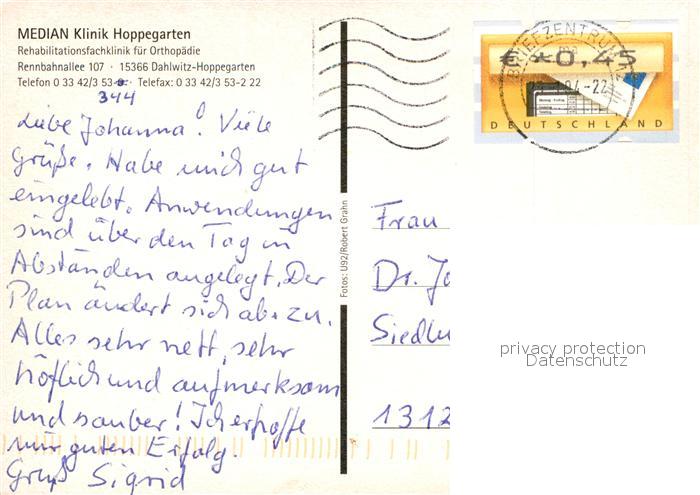 MEDIAN Klinik Hoppegarten
Rehabilitationsfachklinik für Orthopädie
Rennbahnallee 107 · 15366 Dahlwitz-Hoppegarten
Telefon 0 33 42/3 53-0 · Telefax: 0 33 42/3 53-2 22
344
Liebe Johanna! Viele
Grüße. Habe mich gut
eingelebt. Anwendungen
sind über den Tag in
Abständen angelegt. Der
Plan ändert sich ab u. zu.
Alles sehr nett, sehr
höflich und aufmerksam
und sauber! Ich erhoffe
mir guten Erfolg.
Gruß Sigrid
Fotos: U92/Robert Grahn
€ 0,45
BRIEFZENTRUM
DEUTSCHLAND
Frau
Dr. Jo
Siedlu
1312
privacy protection
Datenschutz